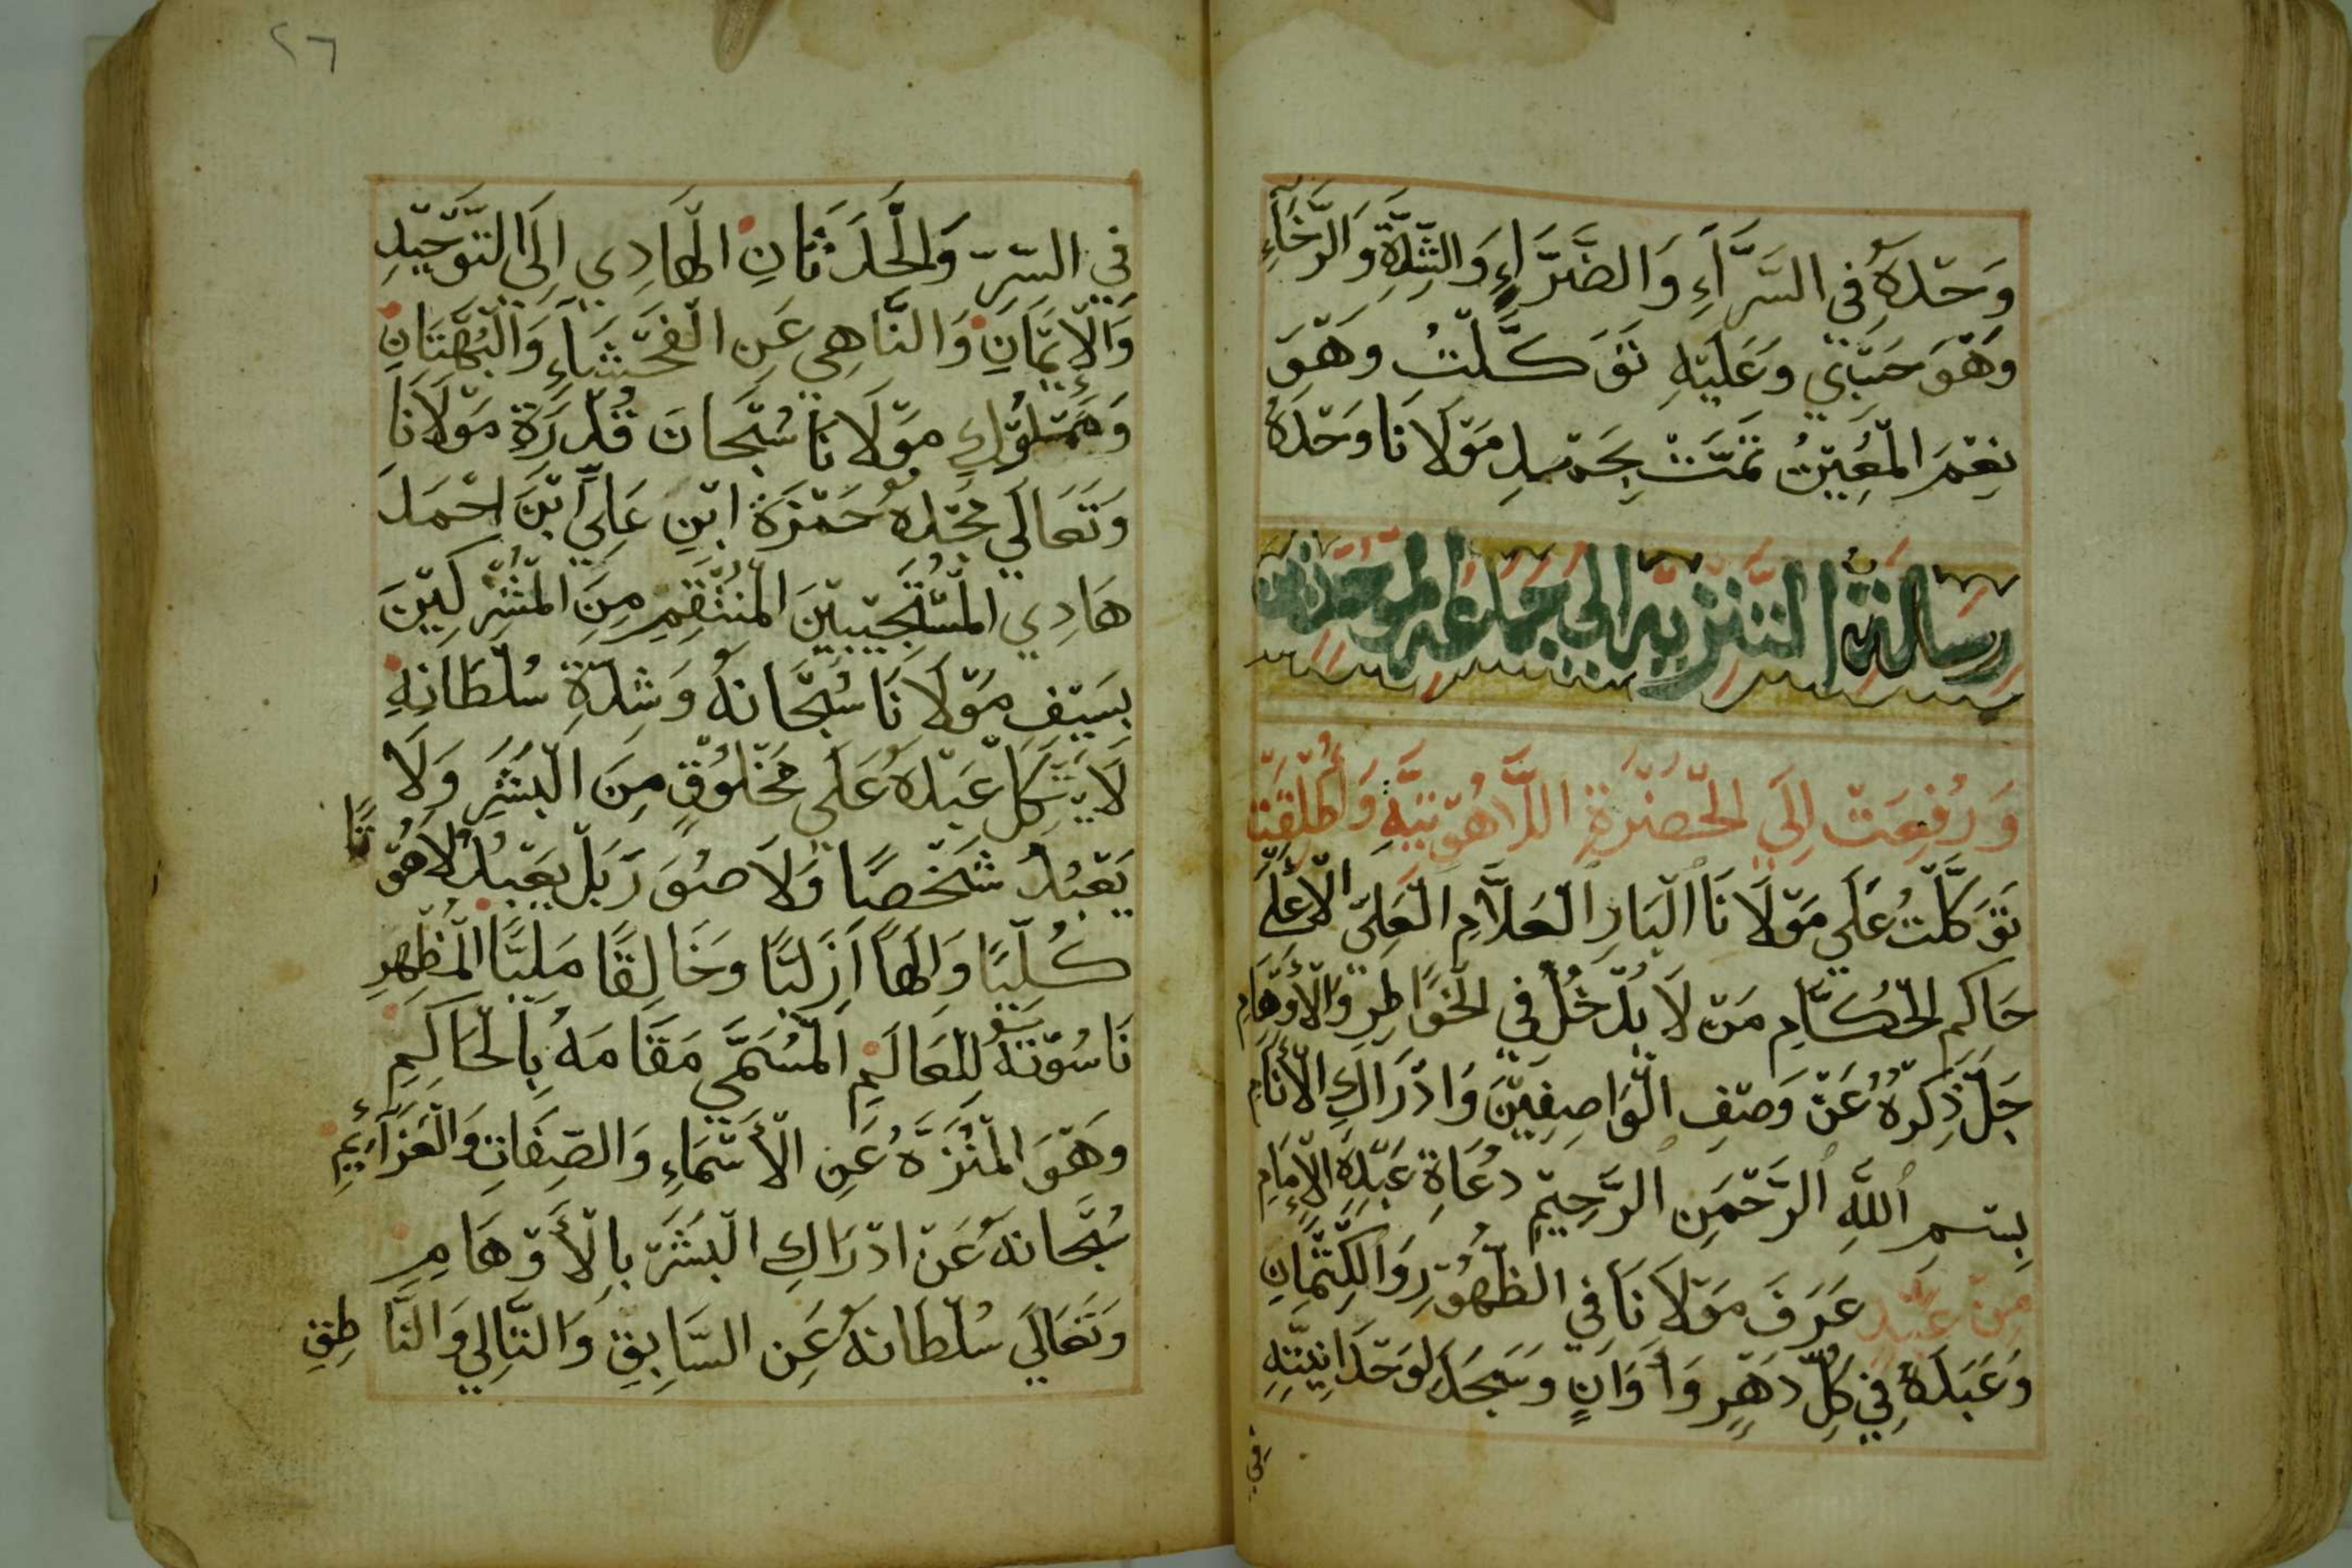 وَحْدَهُ فِي السَّرَّآءِ وَالضَّرَّاءِ وَالشِّدَّةِ وَالرَّخَاءِ
وَهْوَ حَسْبِي وَعَلَيْهِ تَوَكَّلْتُ وَهْوَ
نِعْمَ الْمُعِيْنُ تَمَّتْ بِحَمْدِ مَوْلَانَا وَحْدَهُ
رِسَالَةُ التَّنْزِيْهِ إلى جماعة الموحدين
وَرُفِعَتْ إِلَى الْحَضْرَةِ اللَّاهُوْتِيَّةِ وَأُطْلِقَتْ
تَوَكَّلْتُ عَلَى مَوْلَانَا الْبَارِ الْعَلَّامِ الْعَلِيِّ الْأَعْلَى
حَاكِمِ الْحُكَّامِ مَنْ لَا يُدْخُلُ فِي الْخَوَاطِرِ وَالْأَوْهَامِ
جَلَّ ذِكْرُهُ عَنْ وَصْفِ الْوَاصِفِيْنَ وَادْرَاكِ الْأَنَامِ
بِسْمِ ٱللَّهِ ٱلرَّحْمَنِ ٱلرَّحِيْمِ دُعَاةِ عَبْدِهِ الْإِمَامِ
مِنْ عَبْدٍ عَرَفَ مَوْلَانَا فِي الظُّهُوْرِ وَالْكِتْمَانِ
وَعَبَدَهُ فِي كُلِّ دَهْرٍ وَأَوَانٍ وَسَجَدَ لِوَحْدَانِيَّتِهِ
فِي
٢٦
فِي السِّرِّ وَالْحَدَثَانِ الْهَادِي إِلَى التَّوْحِيْدِ
وَالْإِيْمَانِ وَالنَّاهِي عَنِ الْفَحْشَاءِ وَالْبُهْتَانِ
وَمَمْلُوْكِ مَوْلَانَا سُبْحَانَ قُدْرَةِ مَوْلَانَا
وَتَعَالَى مَجْدُهُ حَمْزَةَ ابْنِ عَلِيِّ ابْنَ احْمَدَ
هَادِي الْمُسْتَجِيْبِيْنَ الْمُنْتَقِمِ مِنَ الْمُشْرِكِيْنَ
بِسَيْفِ مَوْلَانَا سُبْحَانَهُ وَشِدَّةِ سُلْطَانِهِ
لَا يَتَّكِلُ عَبْدَهُ عَلَى مَخْلُوْقٍ مِنَ الْبَشَرِ وَلَا
يَعْبُدُ شَخْصًا وَلَا صُوَرَ بَلْ يَعْبُدُ لَاهُوْتًا
كُلِّيًّا وَإِلَهًا أَزَلِيًّا وَخَالِقًا مَلِيًّا الْمُظْهِرِ
نَاسُوْتَهُ لِلْعَالَمِ الْمُسَمَّى مَقَامَهُ بِالْحَاكِمِ
وَهْوَ الْمُنَزَّهُ عَنِ الْأَسْمَاءِ وَالصِّفَاتِ وَالْعَزَآئِمِ
سُبْحَانَهُ عَنْ ادْرَاكِ الْبَشَرِ بِالْأَوْهَامِ
وَتَعَالَى سُلْطَانَهُ عَنِ السَّابِقِ وَالتَّالِي وَالنَّاطِقِ